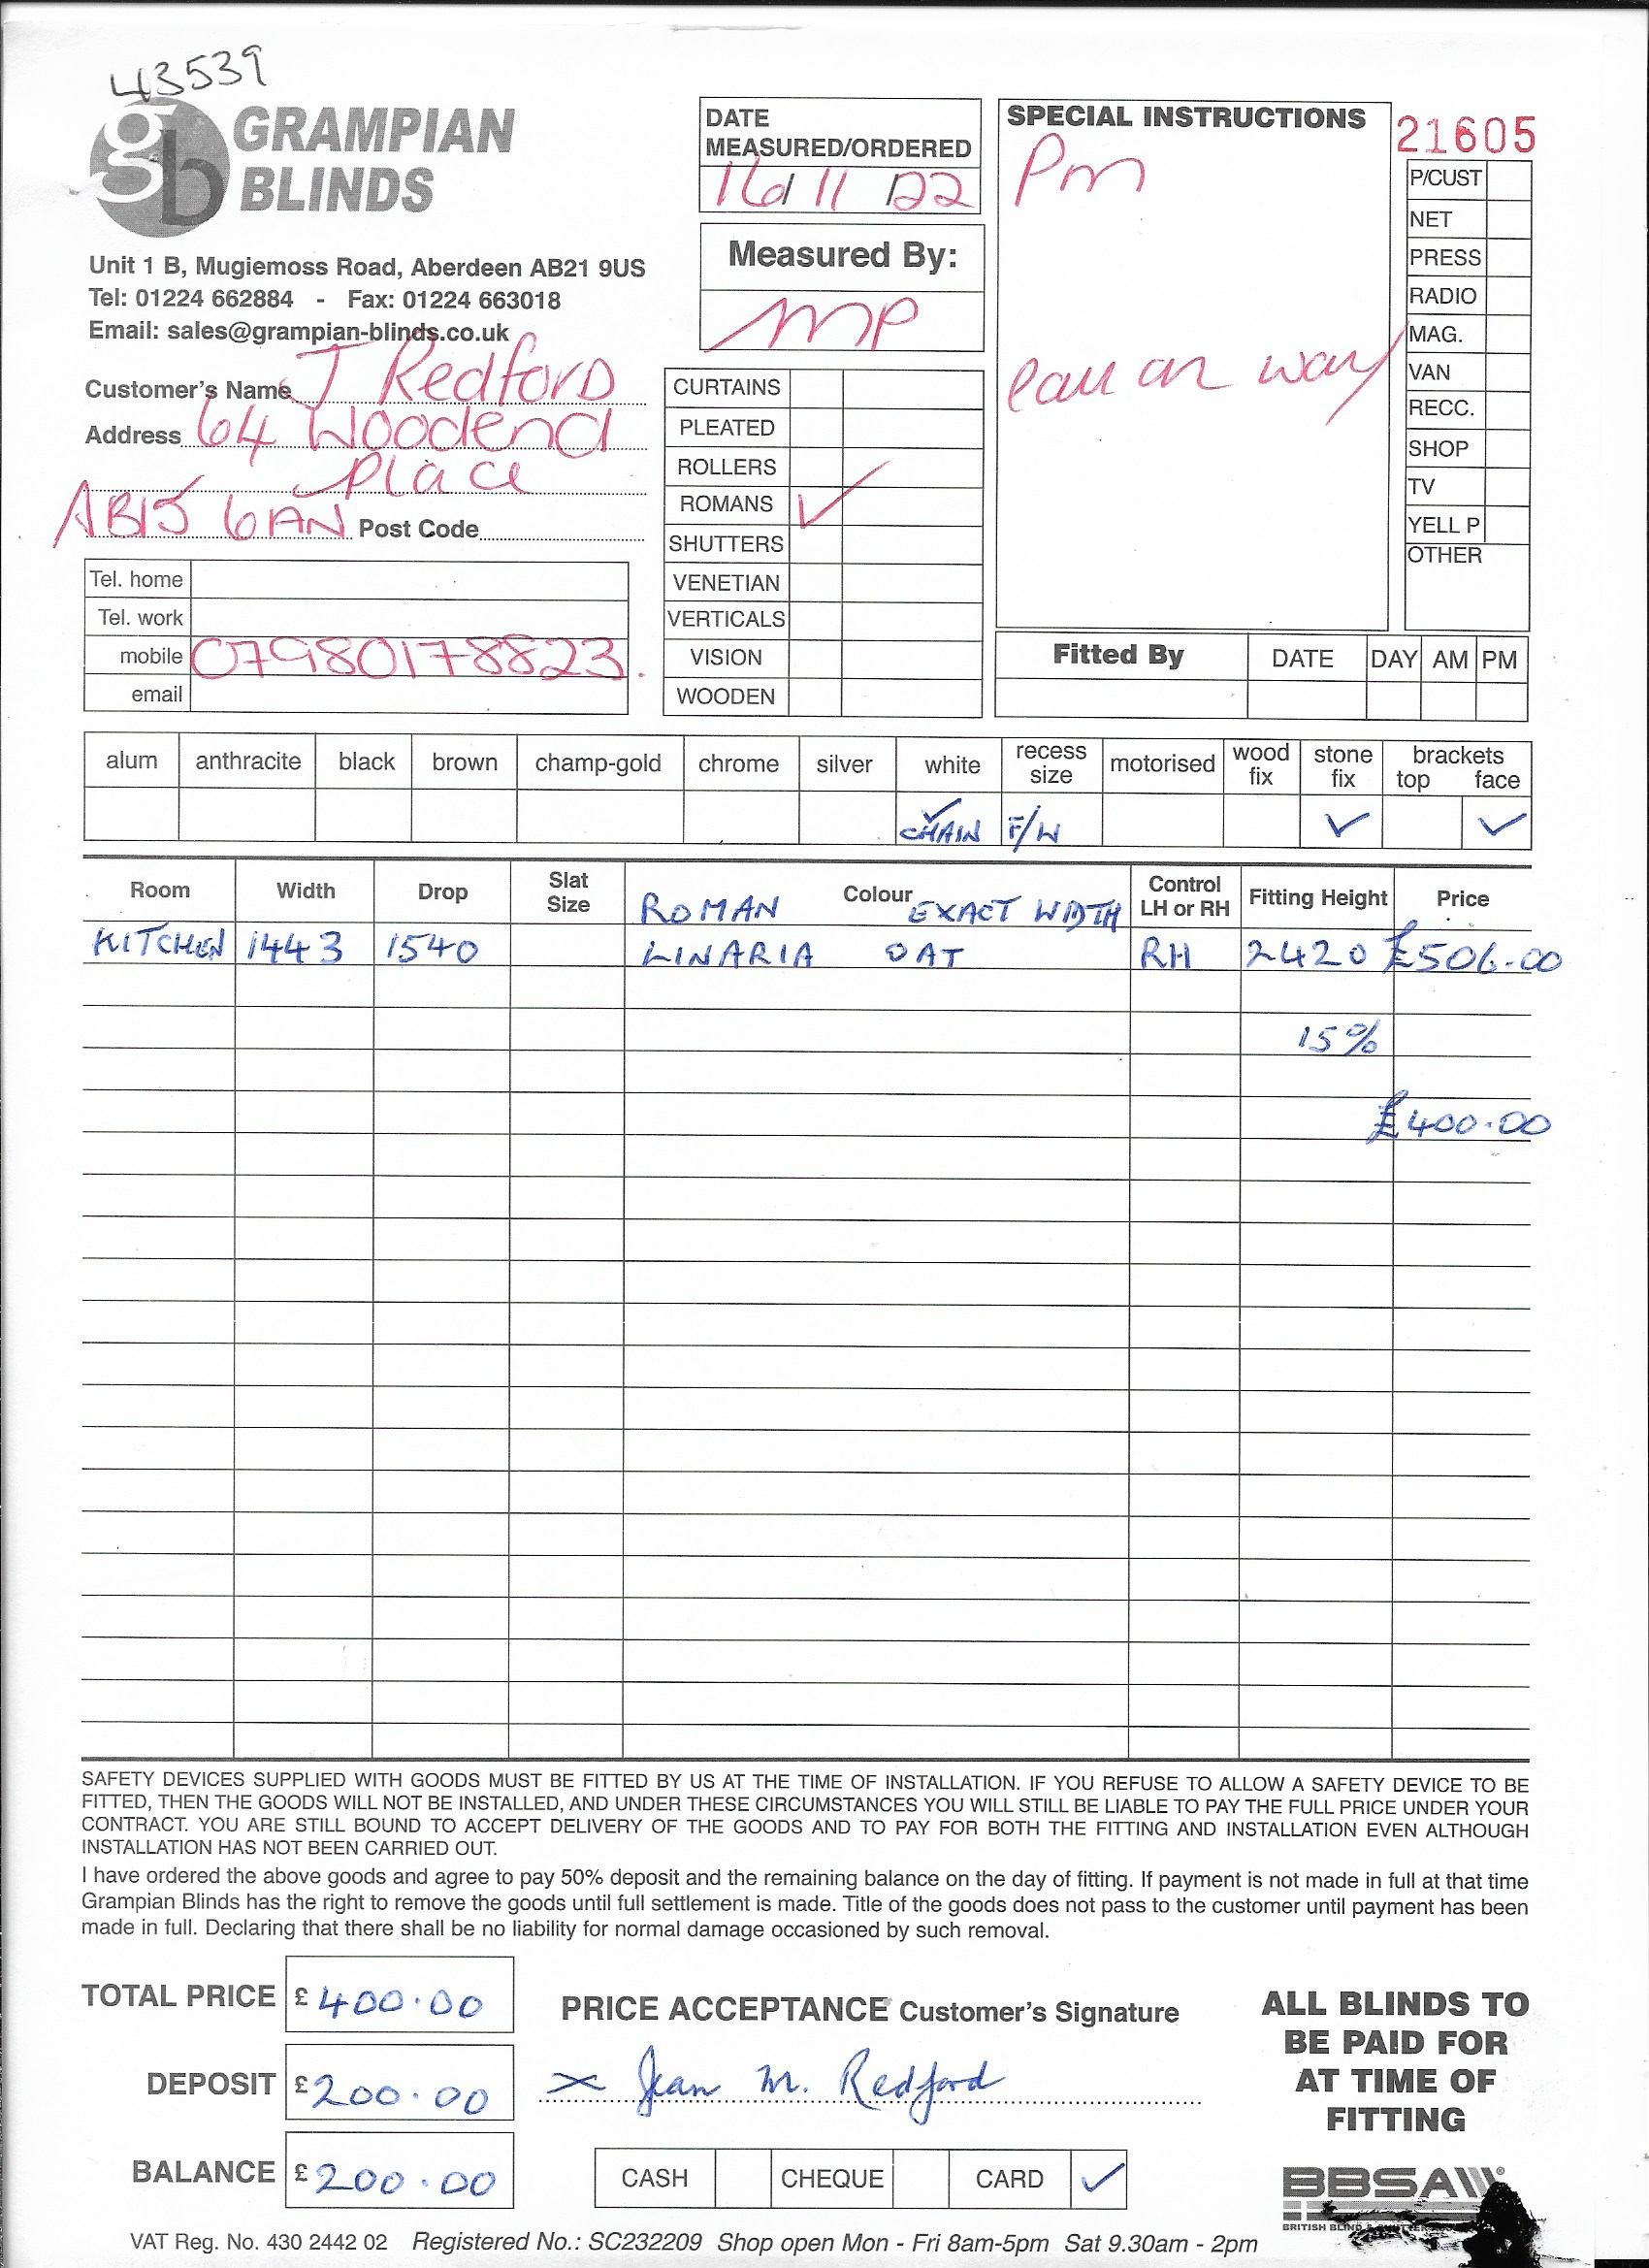 43539
GRAMPIAN
BLINDS
Unit 1 B, Mugiemoss Road, Aberdeen AB21 9US
Tel: 01224 662884 - Fax: 01224 663018
Email: sales@grampian-blinds.co.uk
Customer's Name J Redford
Address 64 Woodend
Place
AB15 6AN Post Code
Tel. home
Tel. work
mobile 07980178823.
email
DATE
MEASURED/ORDERED
16/11/22
Measured By:
MP
CURTAINS
PLEATED
ROLLERS
ROMANS ✓
SHUTTERS
VENETIAN
VERTICALS
VISION
WOODEN
SPECIAL INSTRUCTIONS
Pm
call on way
21605
P/CUST
NET
PRESS
RADIO
MAG.
VAN
RECC.
SHOP
TV
YELL P
OTHER
Fitted By DATE DAY AM PM
alum anthracite black brown champ-gold chrome silver white recess size motorised wood fix stone fix brackets top face
✓ CHAIN F/W ✓ ✓
Room Width Drop Slat Size Colour Control LH or RH Fitting Height Price
ROMAN EXACT WIDTH
KITCHEN 1443 1540 LINARIA OAT RH 2420 £506.00
15%
£400.00
SAFETY DEVICES SUPPLIED WITH GOODS MUST BE FITTED BY US AT THE TIME OF INSTALLATION. IF YOU REFUSE TO ALLOW A SAFETY DEVICE TO BE
FITTED, THEN THE GOODS WILL NOT BE INSTALLED, AND UNDER THESE CIRCUMSTANCES YOU WILL STILL BE LIABLE TO PAY THE FULL PRICE UNDER YOUR
CONTRACT. YOU ARE STILL BOUND TO ACCEPT DELIVERY OF THE GOODS AND TO PAY FOR BOTH THE FITTING AND INSTALLATION EVEN ALTHOUGH
INSTALLATION HAS NOT BEEN CARRIED OUT.
I have ordered the above goods and agree to pay 50% deposit and the remaining balance on the day of fitting. If payment is not made in full at that time
Grampian Blinds has the right to remove the goods until full settlement is made. Title of the goods does not pass to the customer until payment has been
made in full. Declaring that there shall be no liability for normal damage occasioned by such removal.
TOTAL PRICE £ 400.00
DEPOSIT £ 200.00
BALANCE £ 200.00
PRICE ACCEPTANCE Customer's Signature
x Jean M. Redford
CASH CHEQUE CARD ✓
ALL BLINDS TO
BE PAID FOR
AT TIME OF
FITTING
BBSA
BRITISH
VAT Reg. No. 430 2442 02 Registered No.: SC232209 Shop open Mon - Fri 8am-5pm Sat 9.30am - 2pm